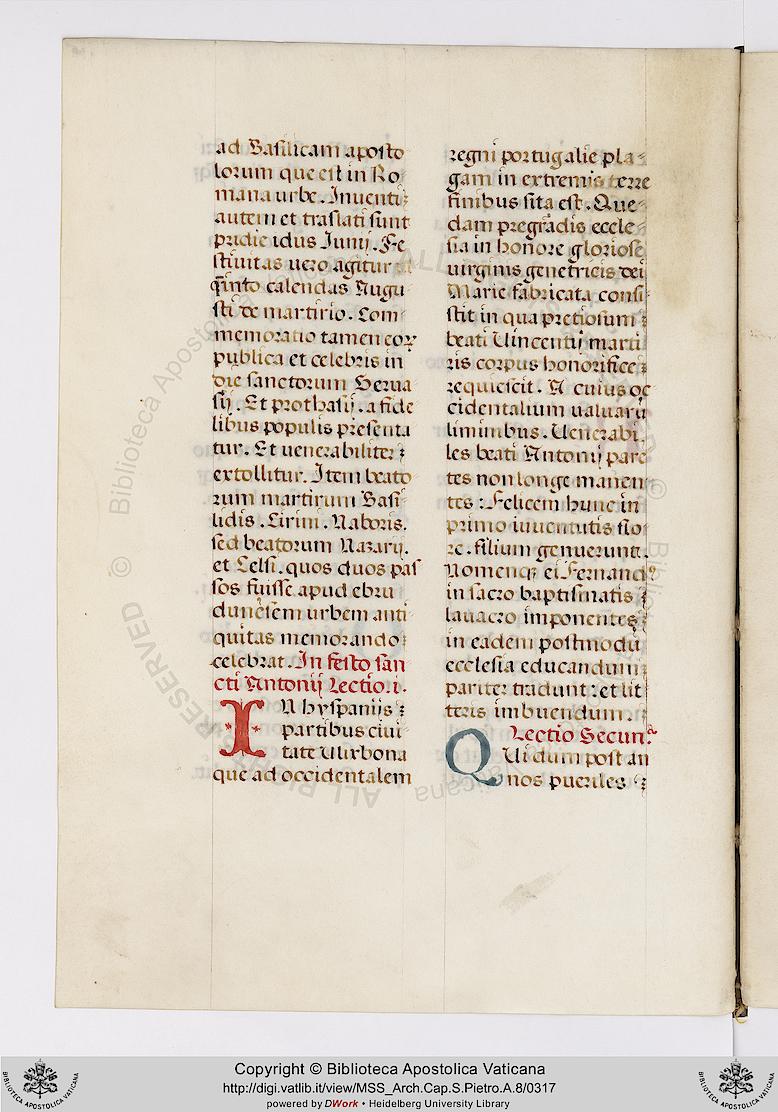 ad Basilicam aposto
lorum que est in Ro
mana urbe. Inuenti
autem et traslati sunt
pridie idus Iunij. Fe
stiuitas uero agitur
q̃into calendas Augu
sti de martirio. Com
memoratio tamen eoꝝ
publica et celebris in
die sanctorum Gerua
sij. Et prothasij. a fide
libus populis presenta
tur. Et uenerabiliter
extollitur. Item beato
rum martirum Basi
lidis. Cirini. Naboris.
sed beatorum Nazarij.
et Celsi. quos duos pas
sos fuisse apud ebru
dunẽsem urbem anti
quitas memorando
celebrat. In festo san
cti Antonij Lectio. i.
IN hyspanijs
partibus ciui
tate Ulixbona
que ad occidentalem
regni portugalie pla-
gam in extremis terre
finibus sita est. Que
dam pregrãdis eccle-
sia in honore gloriose
uirginis genetricis dei
Marie fabricata consi
stit in qua pretiosum
beati Uincentij marti
ris corpus honorifice
requiescit. A cuius oc
cidentalium ualuarũ
liminibus. Uenerabi.
les beati Antonij pare
tes non longe manen-
tes: Felicem hunc in
primo iuuentutis flo
re. filium genuerunt.
Nomenqꝫ ei Fernandꝰ
in sacro baptismatis
lauacro imponentes
in eadem postmodũ
ecclesia educandum
pariter tradunt: et lit
teris imbuendum.
Lectio Secunᵃ
QUi dum post an
nos pueriles
© Biblioteca Apostolica Vaticana
ALL RIGHTS RESERVED
Copyright © Biblioteca Apostolica Vaticana
http://digi.vatlib.it/view/MSS_Arch.Cap.S.Pietro.A.8/0317
powered by DWork • Heidelberg University Library
BIBLIOTECA APOSTOLICA VATICANA
BIBLIOTECA APOSTOLICA VATICANA